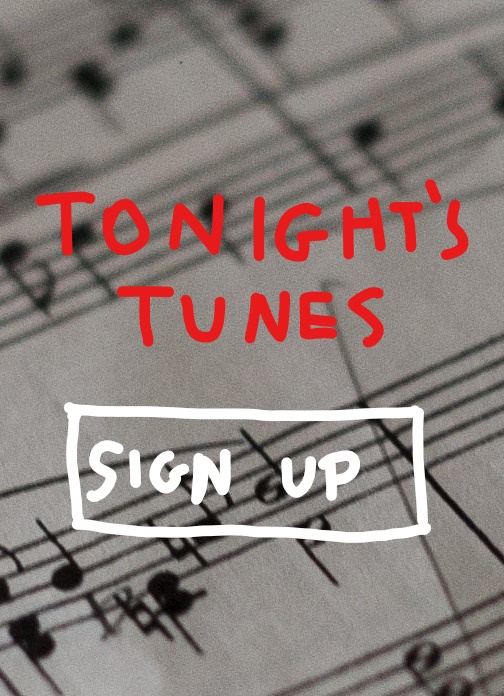 TONIGHT'S
TUNES
SIGN UP